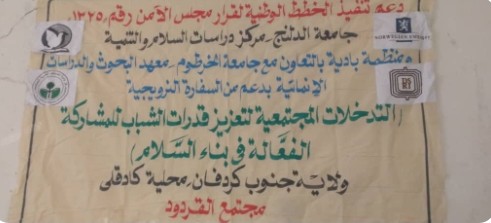 دعم تنفيذ الخطط الوطنية لقرار مجلس الأمن رقم ١٣٢٥،
جامعة الدلنج - مركز دراسات السلام والتنمية
ومنظمة بادية بالتعاون مع جامعة الخرطوم - معهد البحوث والدراسات
الإنمائية بدعم من السفارة النرويجية
(التدخلات المجتمعية لتعزيز قدرات الشباب للمشاركة
الفعالة في بناء السلام)
ولاية جنوب كردفان - محلية كادقلي
مجتمع القردود
NORWEGIAN EMBASSY